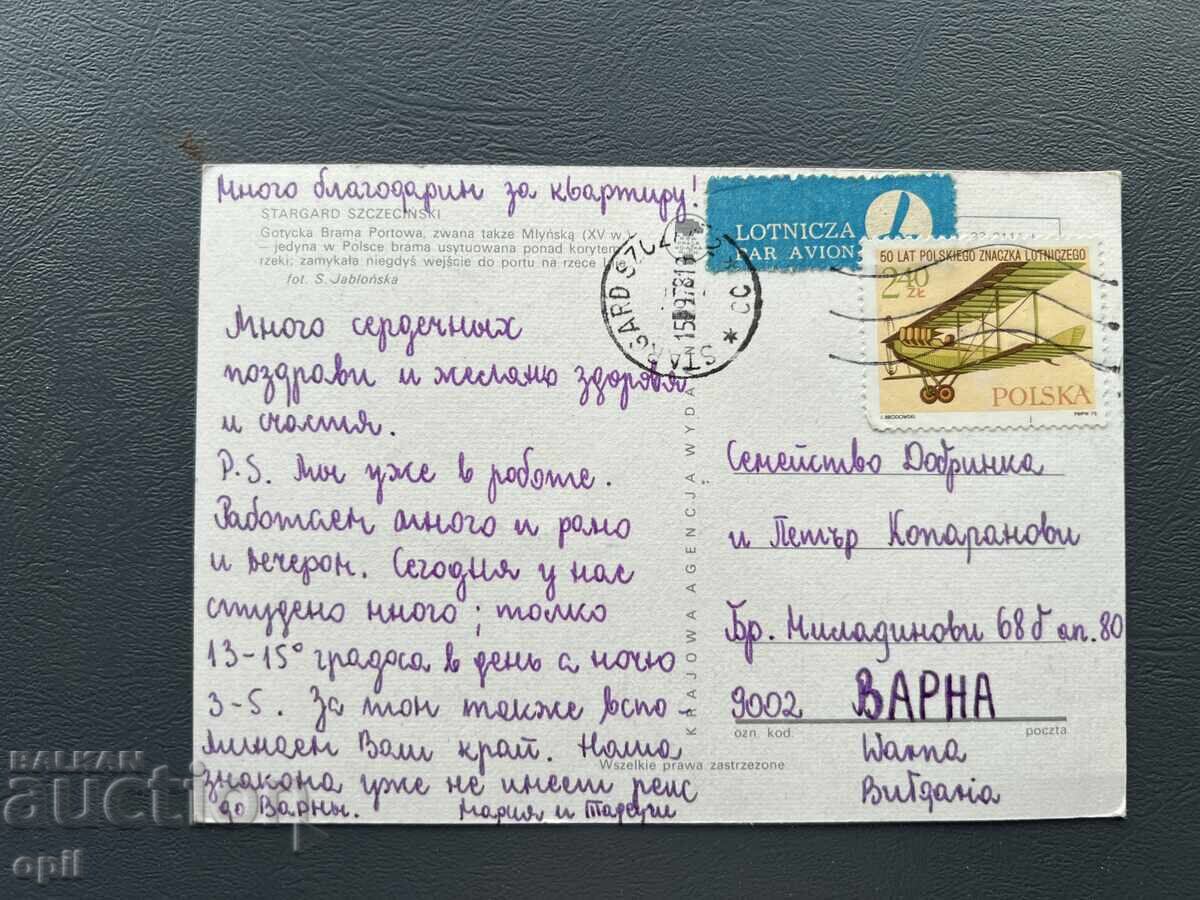 Много благодарин за квартиру!
STARGARD SZCZECIŃSKI
Gotycka Brama Portowa, zwana także Młyńską (XV w.)
— jedyna w Polsce brama usytuowana ponad korytem
rzeki; zamykała niegdyś wejście do portu na rzece
fot. S. Jabłońska
Много сердечных
поздрави и желано здоровя
и счастия.
P.S. Мы уже в работе.
Работаен много и рано
и вечерон. Сегодня у нас
студено много; толко
13-15° градоса в день а ночю
3-5. За тон также вспо-
минаен Ваш край. Наша
знакона уже не инеет рейс
до Варны. Мария и
KRAJOWA AGENCJA WYDA
Wszelkie prawa zastrzeżone
LOTNICZA
PAR AVION
STARGARD SZCZ
15
CC
50 LAT POLSKIEGO ZNACZKA LOTNICZEGO
2.40 ZŁ
POLSKA
Семейство Добринка
и Петър Копаранови
Бр. Миладинови 68б ап. 80
9002 ВАРНА
ozn. kod poczta
Warna
Bułgaria
BALKAN
auction
opil